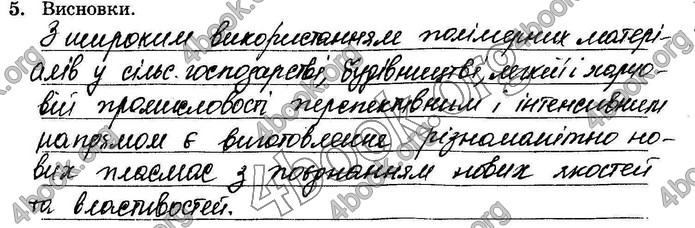 5. Висновки.
З широким використанням полімерних матері-
алів у сільс. господарстві, будівництві, легкій і харчо-
вій промисловості перспективним і інтенсивним
напрямом є виготовлення різноманітно но-
вих пласмас з поєднанням нових якостей
та властивостей.
4book.org